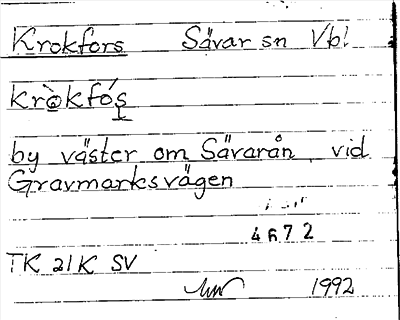 Krokfors Sävar sn Vb!
kròkfós
by väster om Sävarån vid
Gravmarksvägen
4672
TK 21K SV
1992